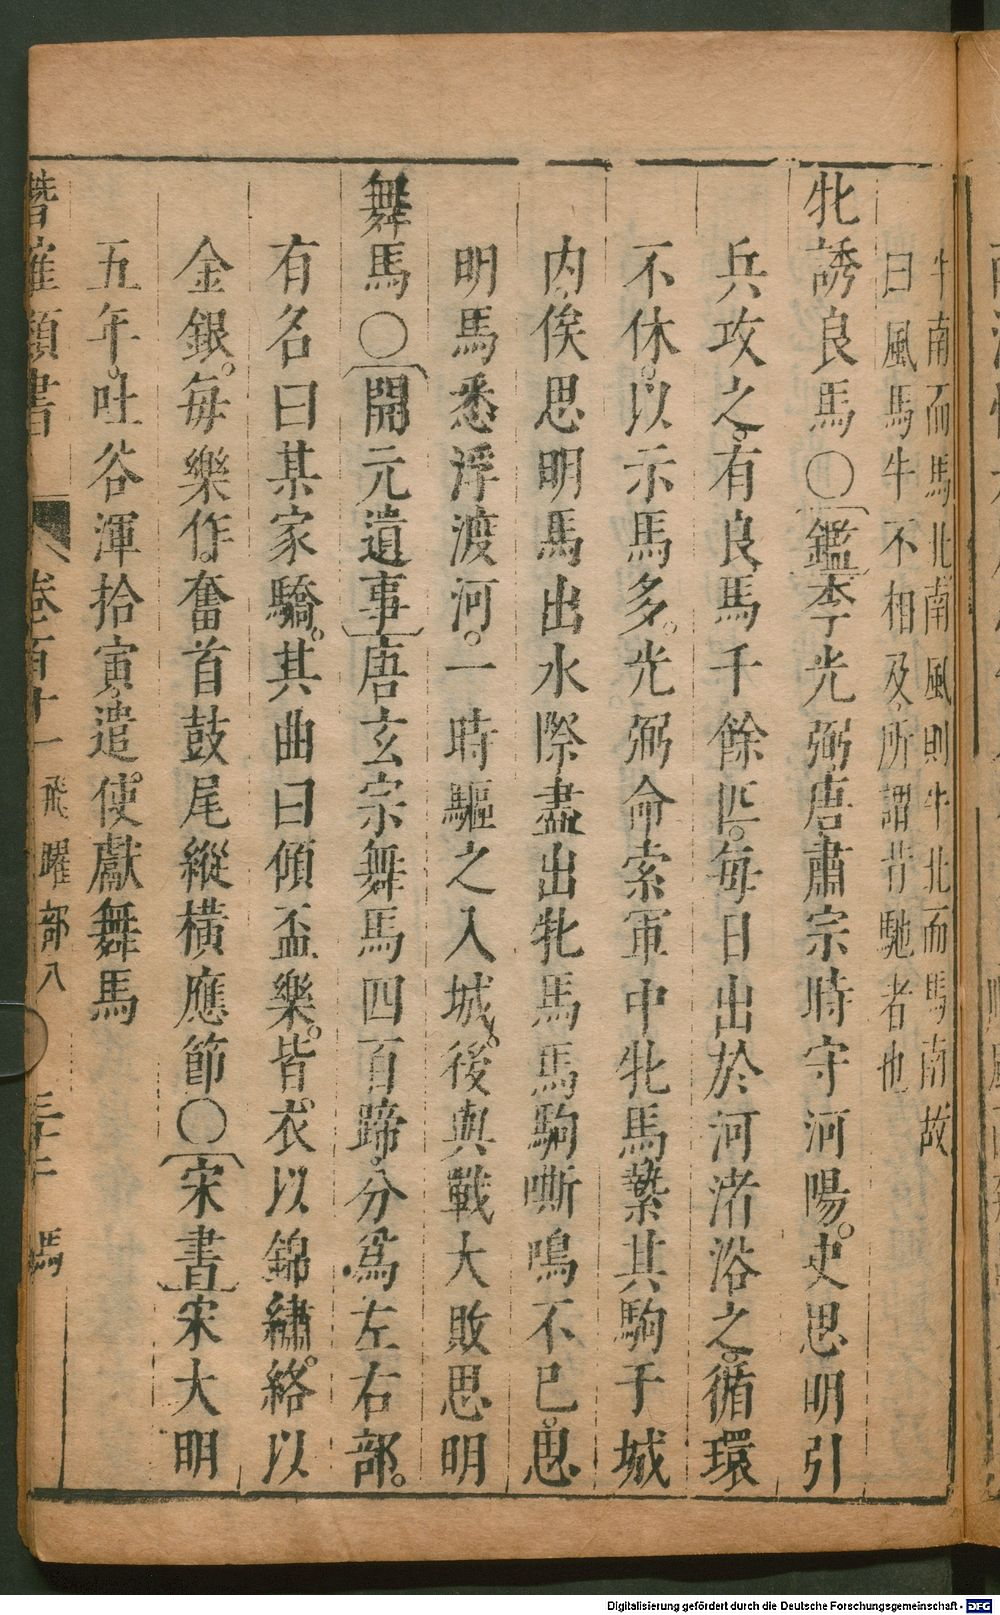 牛南而馬北南風則牛北而馬南故
曰風馬牛不相及所謂背馳者也
牝誘良馬〇鑑李光弼唐肅宗時守河陽史思明引
兵攻之有良馬千餘匹每日出於河渚浴之循環
不休以示馬多光弼命索軍中牝馬縶其駒于城
內俟思明馬出水際盡出牝馬馬駒嘶鳴不已思
明馬悉浮渡河一時驅之入城後與戰大敗思明
舞馬〇開元遺事唐玄宗舞馬四百蹄分爲左右部
有名曰某家驕其曲曰傾盃樂皆衣以錦繡絡以
金銀每樂作奮首鼓尾縱橫應節〇宋書宋大明
五年吐谷渾拾寅遣使獻舞馬
類書 卷百十一 飛躍部八 馬
Digitalisierung gefördert durch die Deutsche Forschungsgemeinschaft - DFG